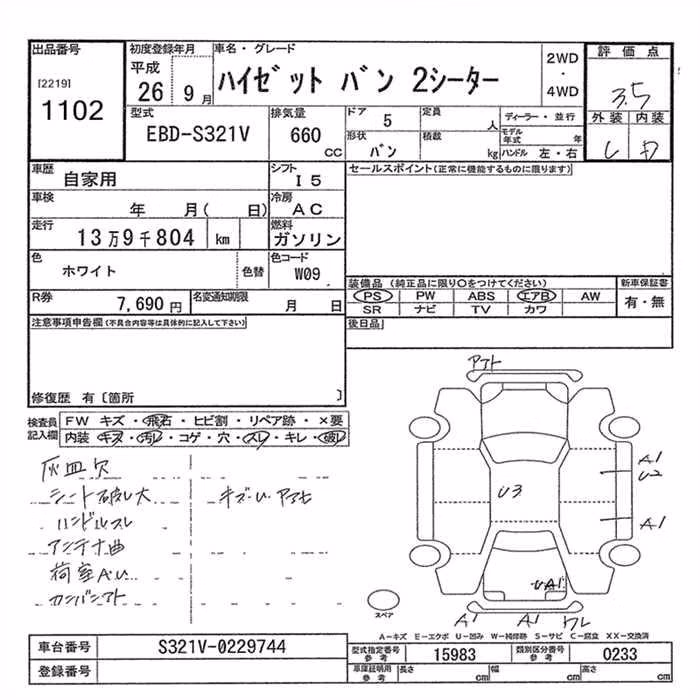 出品番号
[2219]
1102
初度登録年月
平成
26 9月
車名・グレード
ハイゼット バン 2シーター
2WD
・
4WD
評価点
3.5
外装 内装
D
型式
EBD-S321V
排気量
660
CC
ドア 5
形状 バン
定員 人
積載 kg
ディーラー・並行
モデル年式 年
ハンドル 左・右
車歴
自家用
シフト
I5
車検
年 月( 日)
冷房
AC
走行
13万9千804 km
燃料
ガソリン
色
ホワイト
色替
色コード
W09
R券
7,690円
名変通知期限
月 日
セールスポイント(正常に機能するものに限ります)
装備品 (純正品に限り○をつけてください)
PS PW ABS エアB AW
SR ナビ TV カワ
新車保証書
有・無
後日品
注意事項申告欄(不具合内容等は具体的に記入して下さい)
修復歴 有〔箇所 〕
検査員記入欄
FW キズ・飛石・ヒビ割・リペア跡・×要
内装 キズ・汚レ・コゲ・穴・スレ・キレ・破レ
灰皿欠
シート破レ大
ハンドルスレ
アンテナ曲
荷室A.U
カンバンアト
キズ・U・アアヒ
アアト
A1
U2
A1
U3
UA1
A1 A1 ワレ
スペア
A―キズ E―エクボ U―凹み W―補修跡 S―サビ C―腐食 XX―交換済
車台番号
S321V-0229744
登録番号
型式指定番号
参考
15983
類別区分番号
参考
0233
車庫証明用
参考
長さ cm
幅 cm
高さ cm